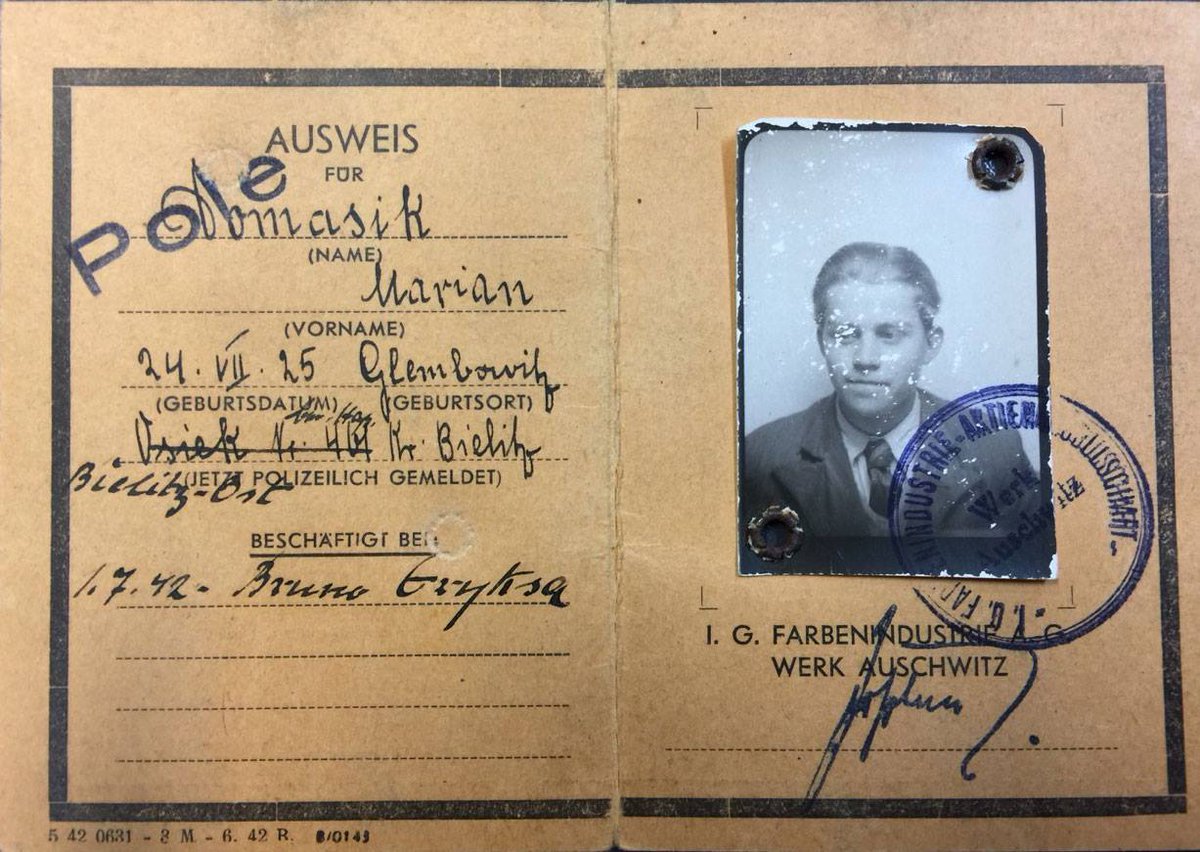 AUSWEIS
FÜR
Pole
Domasik
(NAME)
Marian
(VORNAME)
24. VII. 25 Glembowitz
(GEBURTSDATUM) (GEBURTSORT)
Osiek Nr. 461 Kr. Bielitz
(JETZT POLIZEILICH GEMELDET)
Bielitz-Ost
BESCHÄFTIGT BEI
1.7.42- Bruno
I. G. FARBENINDUSTRIE A. G.
WERK AUSCHWITZ
I. G. FARBENINDUSTRIE-AKTIENGESELLSCHAFT-
Werk
Auschwitz
5 42 0631 - 3 M - 6. 42 R. B/0143